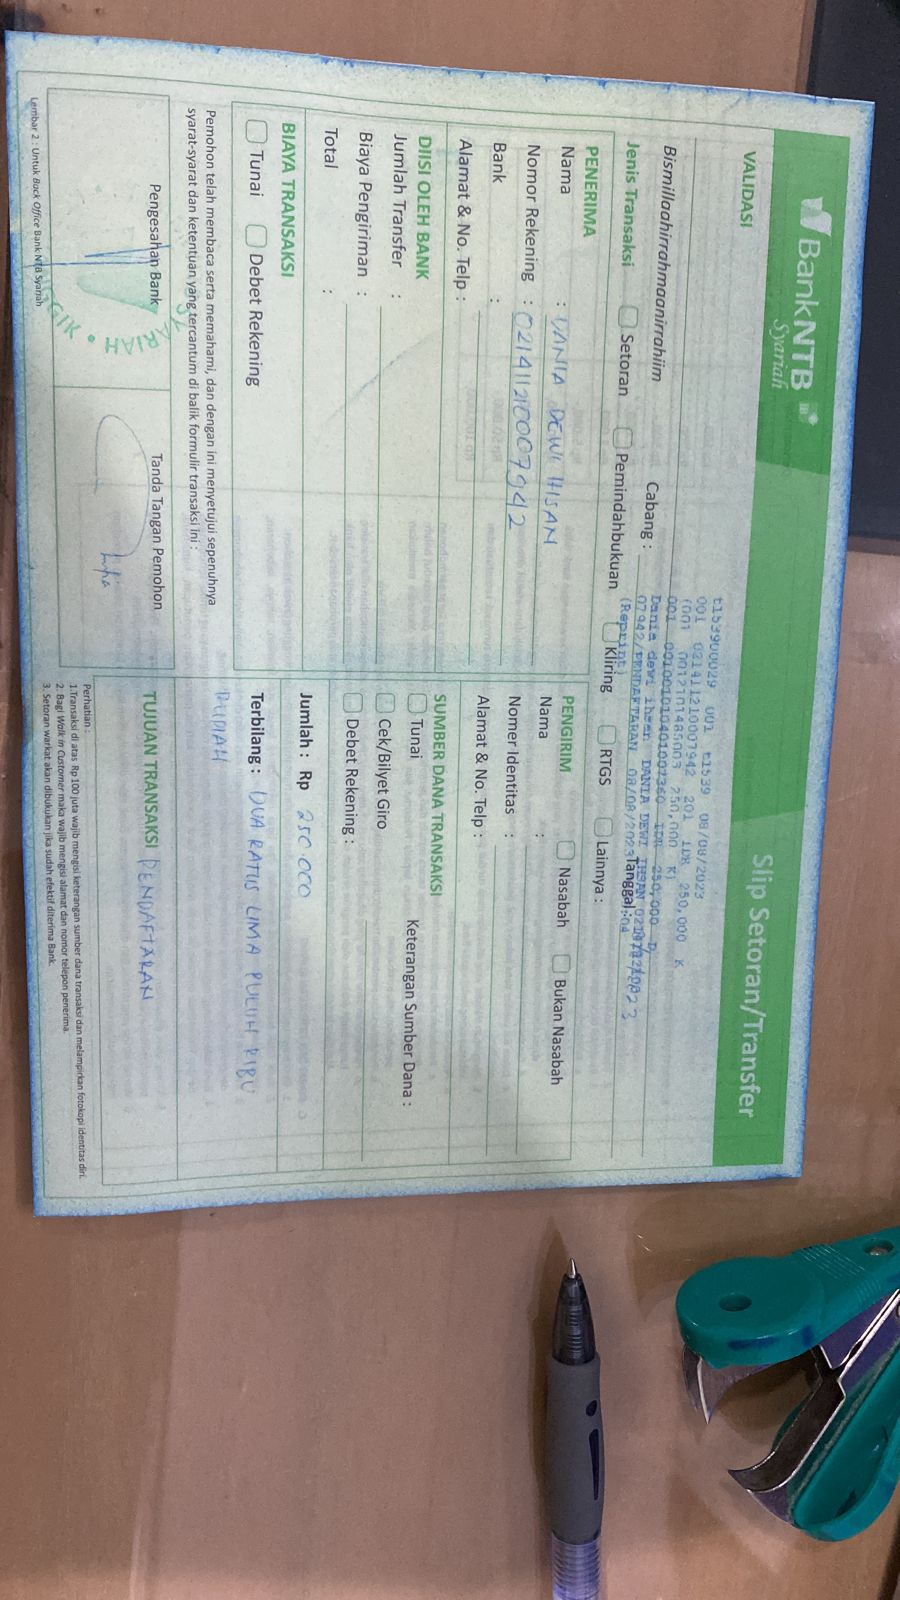 BankNTB
Syariah
Slip Setoran/Transfer
VALIDASI
t153900029 001 t1539 08/08/2023
001 021411210007942 201 IDR 250,000 K
001 001001010401001360 IDR 250,000 D
Bismillaahirrahmaanirrahiim
Cabang :
Tanggal :
Dania dewi ihsan DANIA DEWI IHSAN
07942/PENDAFTARAN 08/08/2023
(Reprint)
Jenis Transaksi
Setoran
Pemindahbukuan
Kliring
RTGS
Lainnya :
PENERIMA
Nama : DANIA DEWI IHSAN
Nomor Rekening : 021411210007942
Bank :
Alamat & No. Telp :
PENGIRIM
Nasabah
Bukan Nasabah
Nama :
Nomer Identitas :
Alamat & No. Telp :
DIISI OLEH BANK
Jumlah Transfer :
Biaya Pengiriman :
Total :
SUMBER DANA TRANSAKSI
Tunai
Cek/Bilyet Giro
Debet Rekening :
Keterangan Sumber Dana :
BIAYA TRANSAKSI
Tunai
Debet Rekening
Jumlah : Rp 250.000
Terbilang : DUA RATUS LIMA PULUH RIBU
RUPIAH
Pemohon telah membaca serta memahami, dan dengan ini menyetujui sepenuhnya
syarat-syarat dan ketentuan yang tercantum di balik formulir transaksi ini :
Pengesahan Bank
Tanda Tangan Pemohon
TUJUAN TRANSAKSI PENDAFTARAN
Perhatian :
1.Transaksi di atas Rp 100 juta wajib mengisi keterangan sumber dana transaksi dan melampirkan fotokopi identitas diri.
2. Bagi Walk in Customer maka wajib mengisi alamat dan nomor telepon penerima.
3. Setoran warkat akan dibukukan jika sudah efektif diterima Bank.
Lembar 2 : Untuk Back Office Bank NTB Syariah